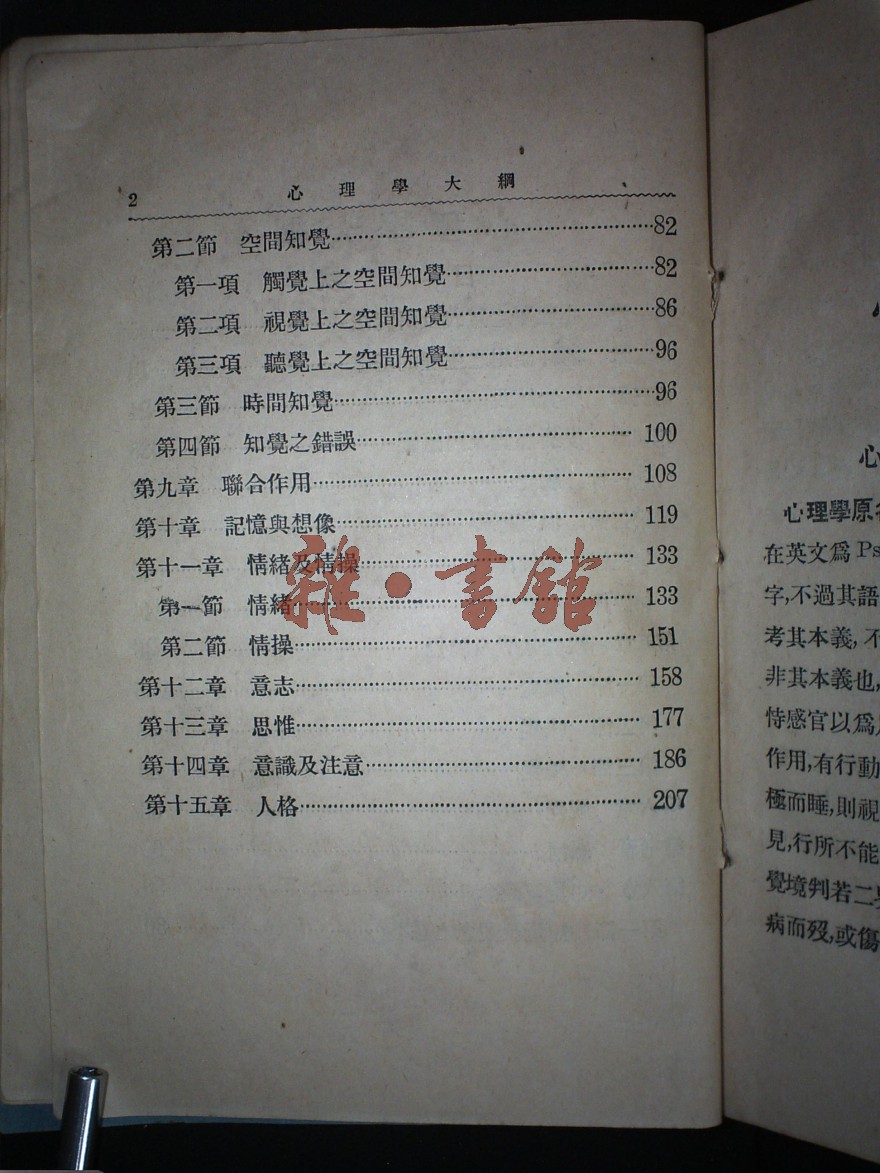 2 心理學大綱
第二節 空間知覺……82
第一項 觸覺上之空間知覺……82
第二項 視覺上之空間知覺……86
第三項 聽覺上之空間知覺……96
第三節 時間知覺……96
第四節 知覺之錯誤……100
第九章 聯合作用……108
第十章 記憶與想像……119
第十一章 情緒及情操……133
第一節 情緒……133
第二節 情操……151
第十二章 意志……158
第十三章 思惟……177
第十四章 意識及注意……186
第十五章 人格……207
雜·書館
心
心理學原
在英文爲Ps
字,不過其語
考其本義,不
非其本義也,
恃感官以爲
作用,有行動
極而睡,則視
見,行所不能
覺境判若二
病而歿,或傷